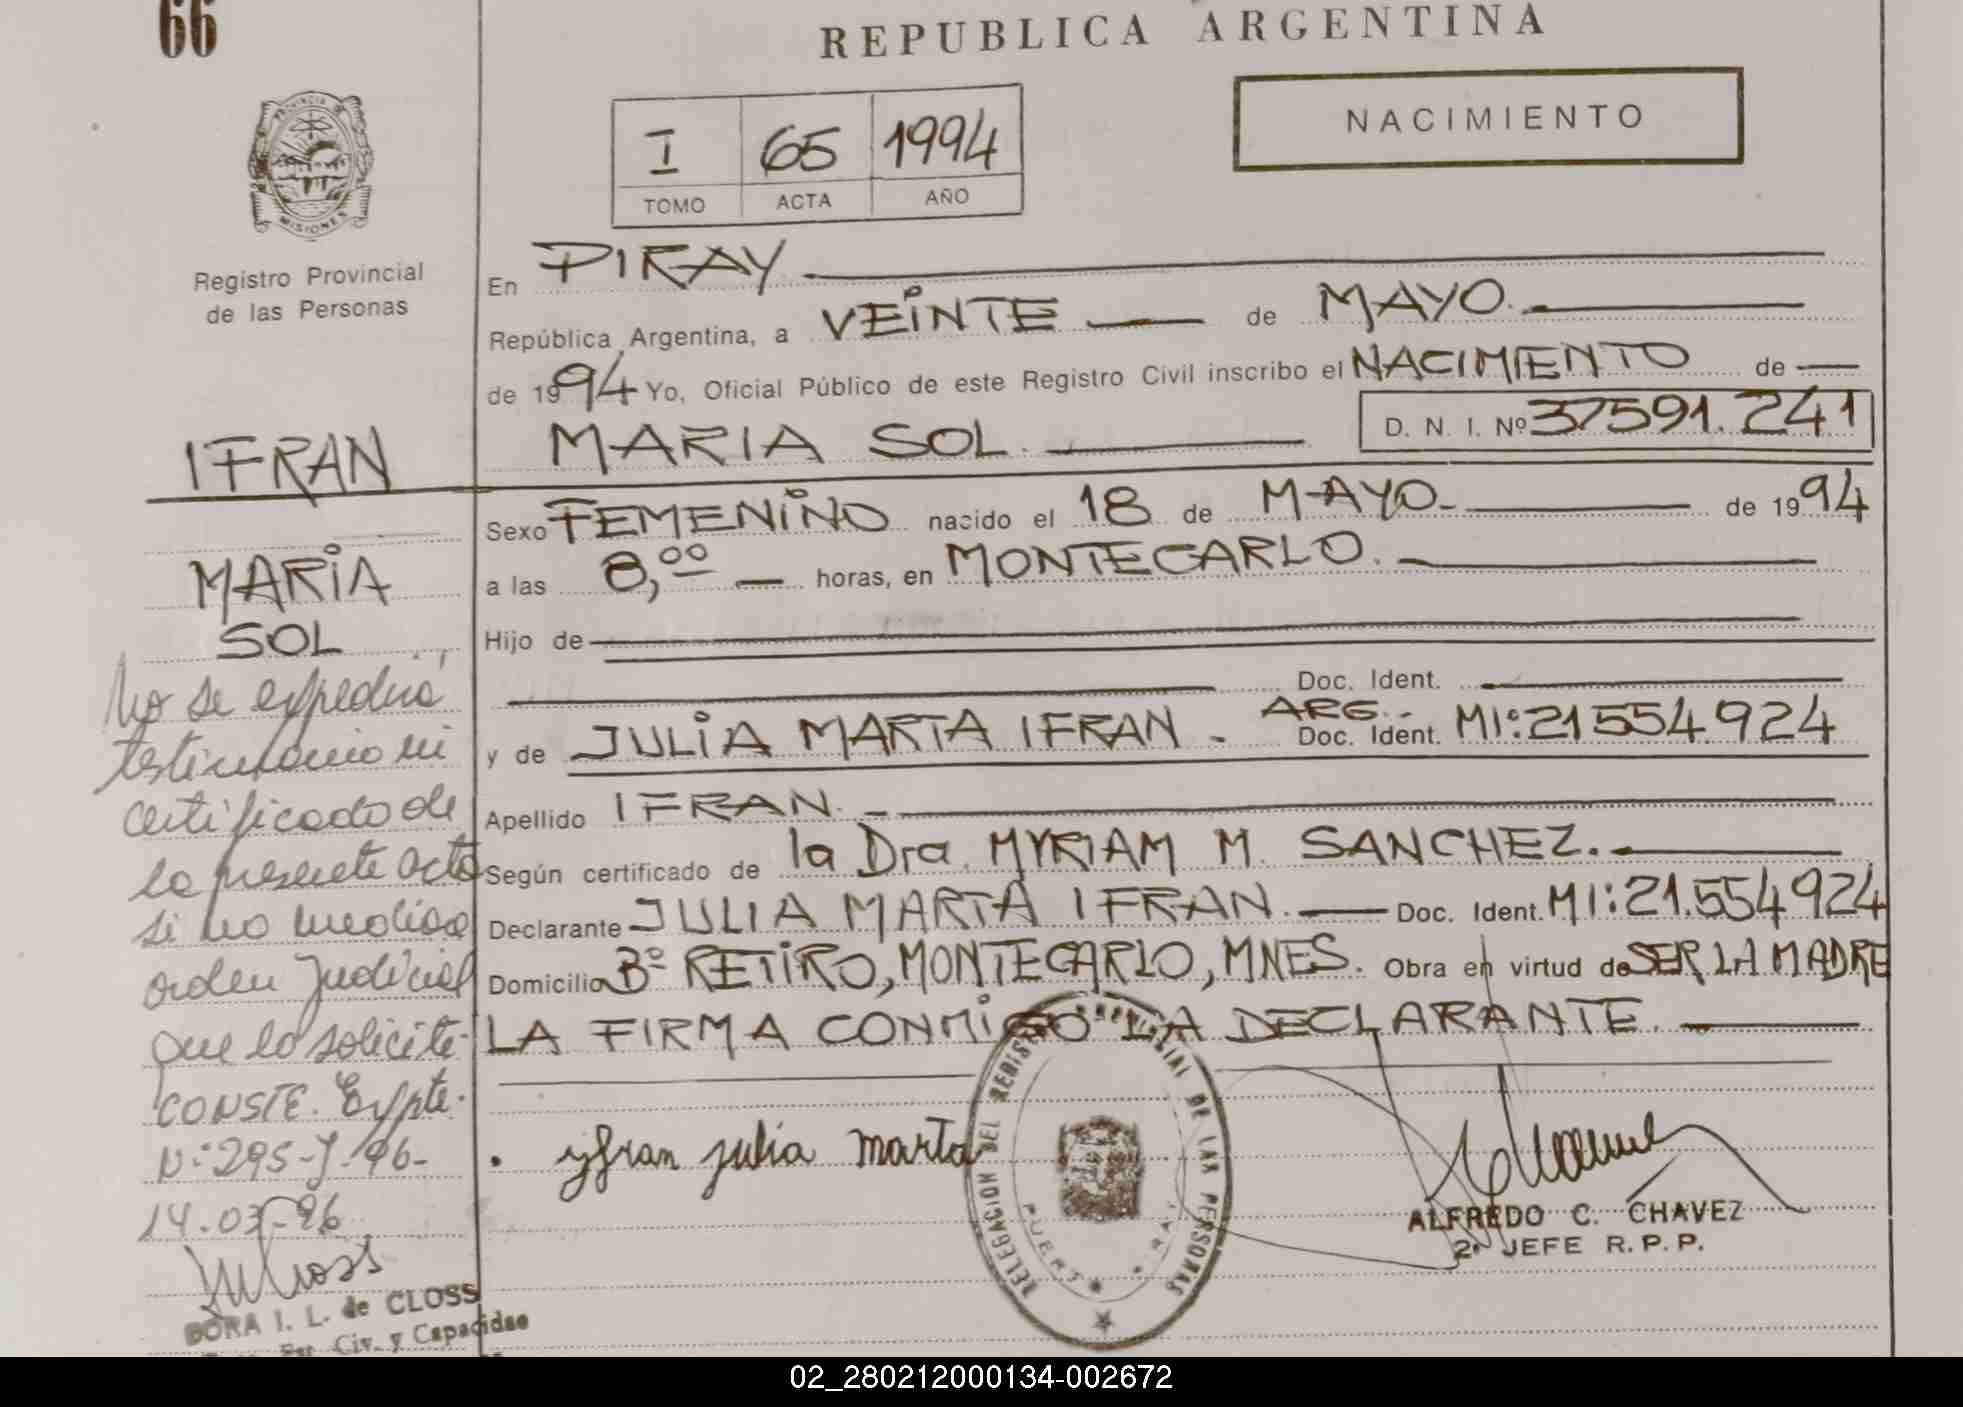 66
REPUBLICA ARGENTINA
NACIMIENTO
I 65 1994
TOMO ACTA AÑO
PROVINCIA DE
MISIONES
Registro Provincial
de las Personas
IFRAN
MARIA
SOL
No se expedirá
testimonio ni
certificado de
la presente acta
si no medisa
orden Judicial
que lo solicite.
CONSTE. Expte.
N: 295-J-96-
14-03-96
DORA I. L. de CLOSS
Est. Civ. y Capacidad
En PIRAY
República Argentina, a VEINTE de MAYO.
de 1994 Yo, Oficial Público de este Registro Civil inscribo el NACIMIENTO de
MARIA SOL. D. N. I. Nº 37591.241
Sexo FEMENINO nacido el 18 de MAYO. de 1994
a las 8,00 horas, en MONTECARLO.
Hijo de
Doc. Ident.
y de JULIA MARTA IFRAN. ARG. Doc. Ident. MI:21554.924
Apellido IFRAN.
Según certificado de la Dra. MYRIAM M. SANCHEZ.
Declarante JULIA MARTA IFRAN. Doc. Ident. MI:21.554924
Domicilio Bº RETIRO, MONTECARLO, MNES. Obra en virtud de SER LA MADRE
LA FIRMA CONMIGO LA DECLARANTE.
yfran julia marta
DELEGACION DEL REGISTRO PROVINCIAL DE LAS PERSONAS
PUERTO PIRAY
ALFREDO C. CHAVEZ
2º JEFE R.P.P.
02_280212000134-002672